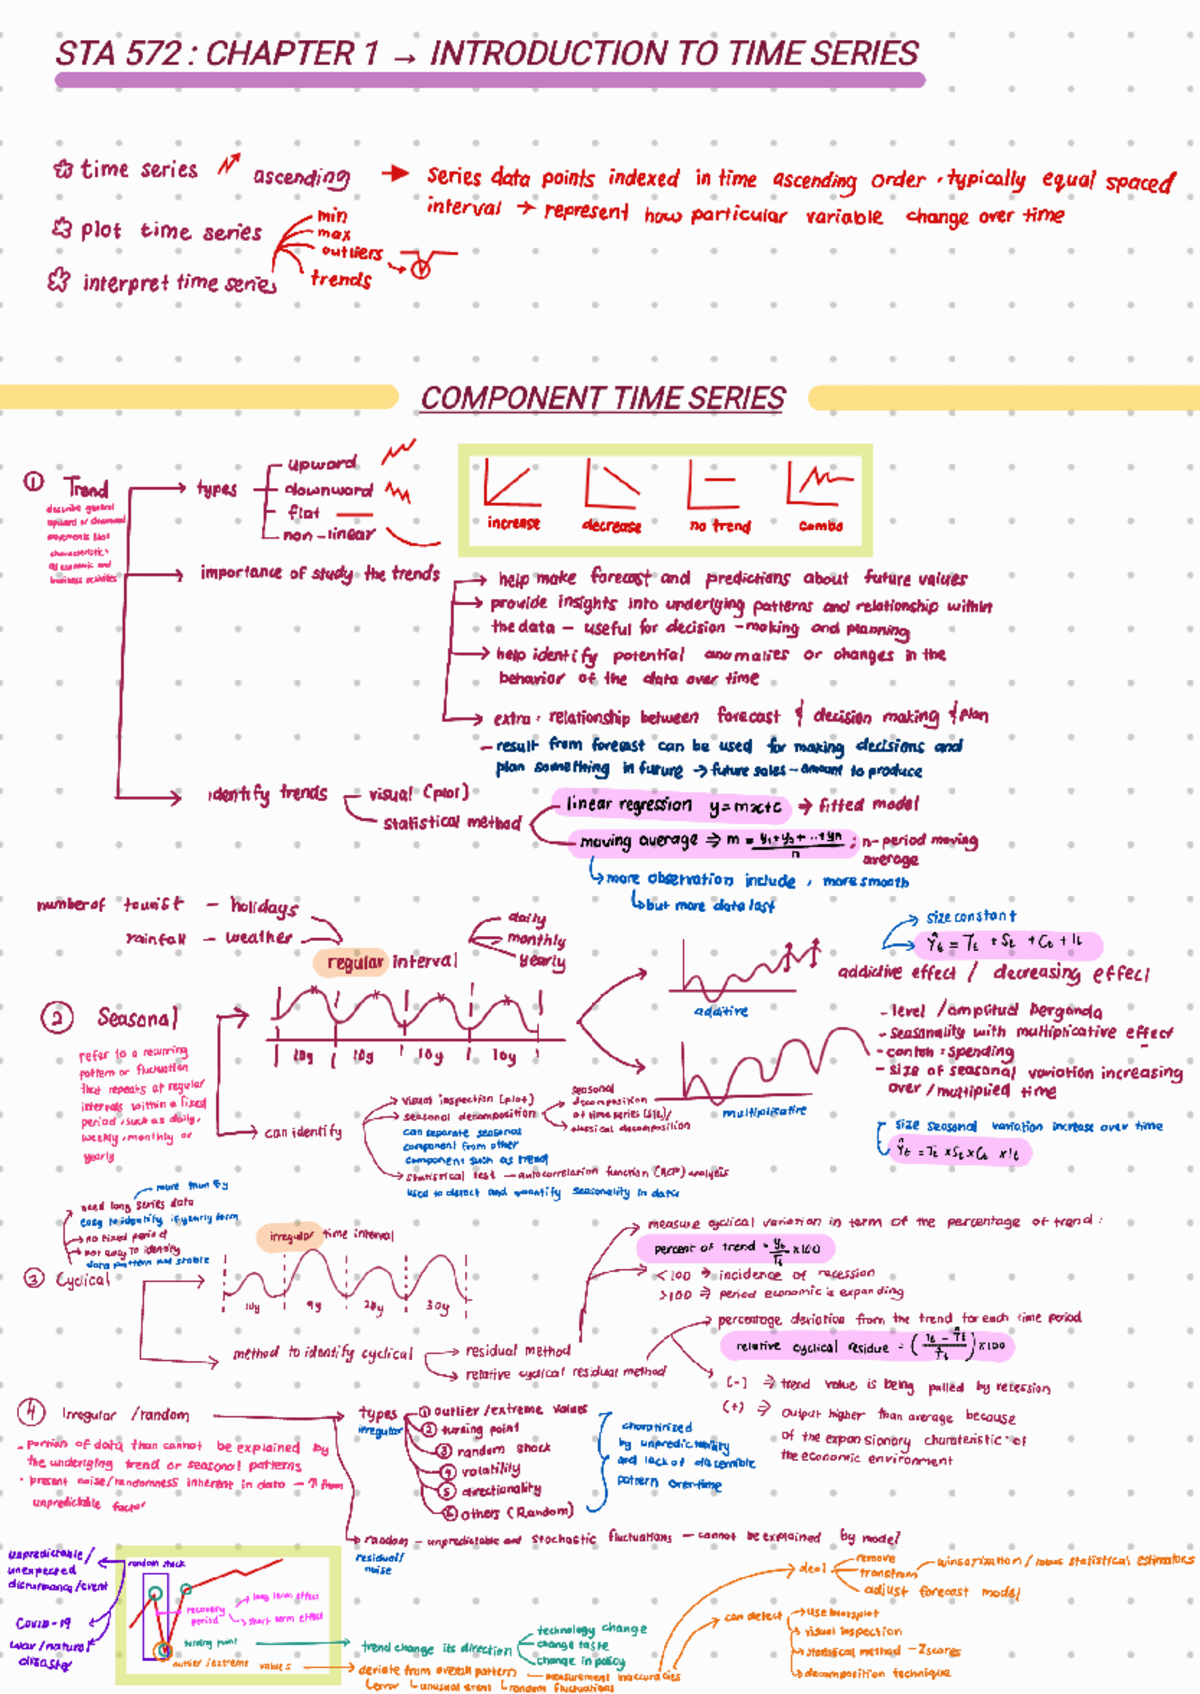 STA 572 : CHAPTER 1 → INTRODUCTION TO TIME SERIES
time series
ascending → series data points indexed in time ascending order . typically equal spaced
interval → represent how particular variable change over time
plot time series
interpret time series
min
max
outliers
trends
COMPONENT TIME SERIES
① Trend
describe general
upward or downward
movements that
characteristics
all economic and
business activities
types
upward
downward
flat
non-linear
increase
decrease
no trend
combo
importance of study the trends
help make forecast and predictions about future values
provide insights into underlying patterns and relationship within
the data – useful for decision -making and planning
help identify potential anomalies or changes in the
behavior of the data over time
extra : relationship between forecast & decision making & plan
- result from forecast can be used for making decisions and
plan something in future → future sales - amount to produce
identify trends
visual (plot)
statistical method
linear regression y=mx+c → fitted model
moving average ⇒ m = y₁+y₂+...+yn / n ; n-period moving
average
more observation include , more smooth
but more data lost
number of tourist - holidays
rainfall - weather
regular interval
daily
monthly
yearly
② Seasonal
refer to a recurring
pattern or fluctuation
that repeats at regular
intervals within a fixed
period , such as daily,
weekly , monthly or
yearly
10y 10y 10y 10y
additive
multiplicative
size constant
Ŷt = Tt + St + Ct + It
addictive effect / decreasing effect
- level / amplitud berganda
- seasonality with multiplicative effect
- contoh : spending
- size of seasonal variation increasing
over / multiplied time
size seasonal variation increase over time
Ŷt = Tt x St x Ct x It
can identify
visual inspection (plot)
seasonal decomposition
can separate seasonal
component from other
component such as trend
seasonal
decomposition
of time series (STL) /
classical decomposition
statistical test — autocorrelation function (ACF) analysis
used to detect and quantify seasonality in data
more than 5y
need long series data
easy to identify if yearly form
no fixed period
not easy to identify
data pattern not stable
③ Cyclical
irregular time interval
10y 9y 20y 30y
method to identify cyclical
residual method
relative cyclical residual method
measure cyclical variation in term of the percentage of trend :
percent of trend = yt / Tt x 100
<100 ⇒ incidence of recession
>100 ⇒ period economic is expanding
percentage deviation from the trend for each time period
relative cyclical residue = ( Tt - T̂t / T̂t ) x 100
(-) ⇒ trend value is being pulled by recession
(+) ⇒ output higher than average because
of the expansionary charateristic of
the economic environment
④ Irregular / random
- portion of data than cannot be explained by
the underlying trend or seasonal patterns
• present noise/randomness inherent in data - ↑ from
unpredictable factor
types
irregular
① outlier / extreme values
② turning point
③ random shock
④ volatility
⑤ directionality
⑥ others (Random)
charatirized
by unpredictability
and lack of discernible
pattern over-time
random - unpredictable and stochastic fluctuations — cannot be explained by model
residual/
noise
unpredictable /
unexpected
disturbance/event
Covid-19
war / natural
disaster
random shock
recovery
period
long term effect
short term effect
turning point
outlier / extreme values
trend change its direction
technology change
change taste
change in policy
deviate from overall pattern
error
unusual event
random fluctuations
measurement inaccuracies
deal
remove
transform
adjust forecast model
winsorization / robust statistical estimators
can detect
use boxplot
visual inspection
statistical method - Zscores
decomposition technique